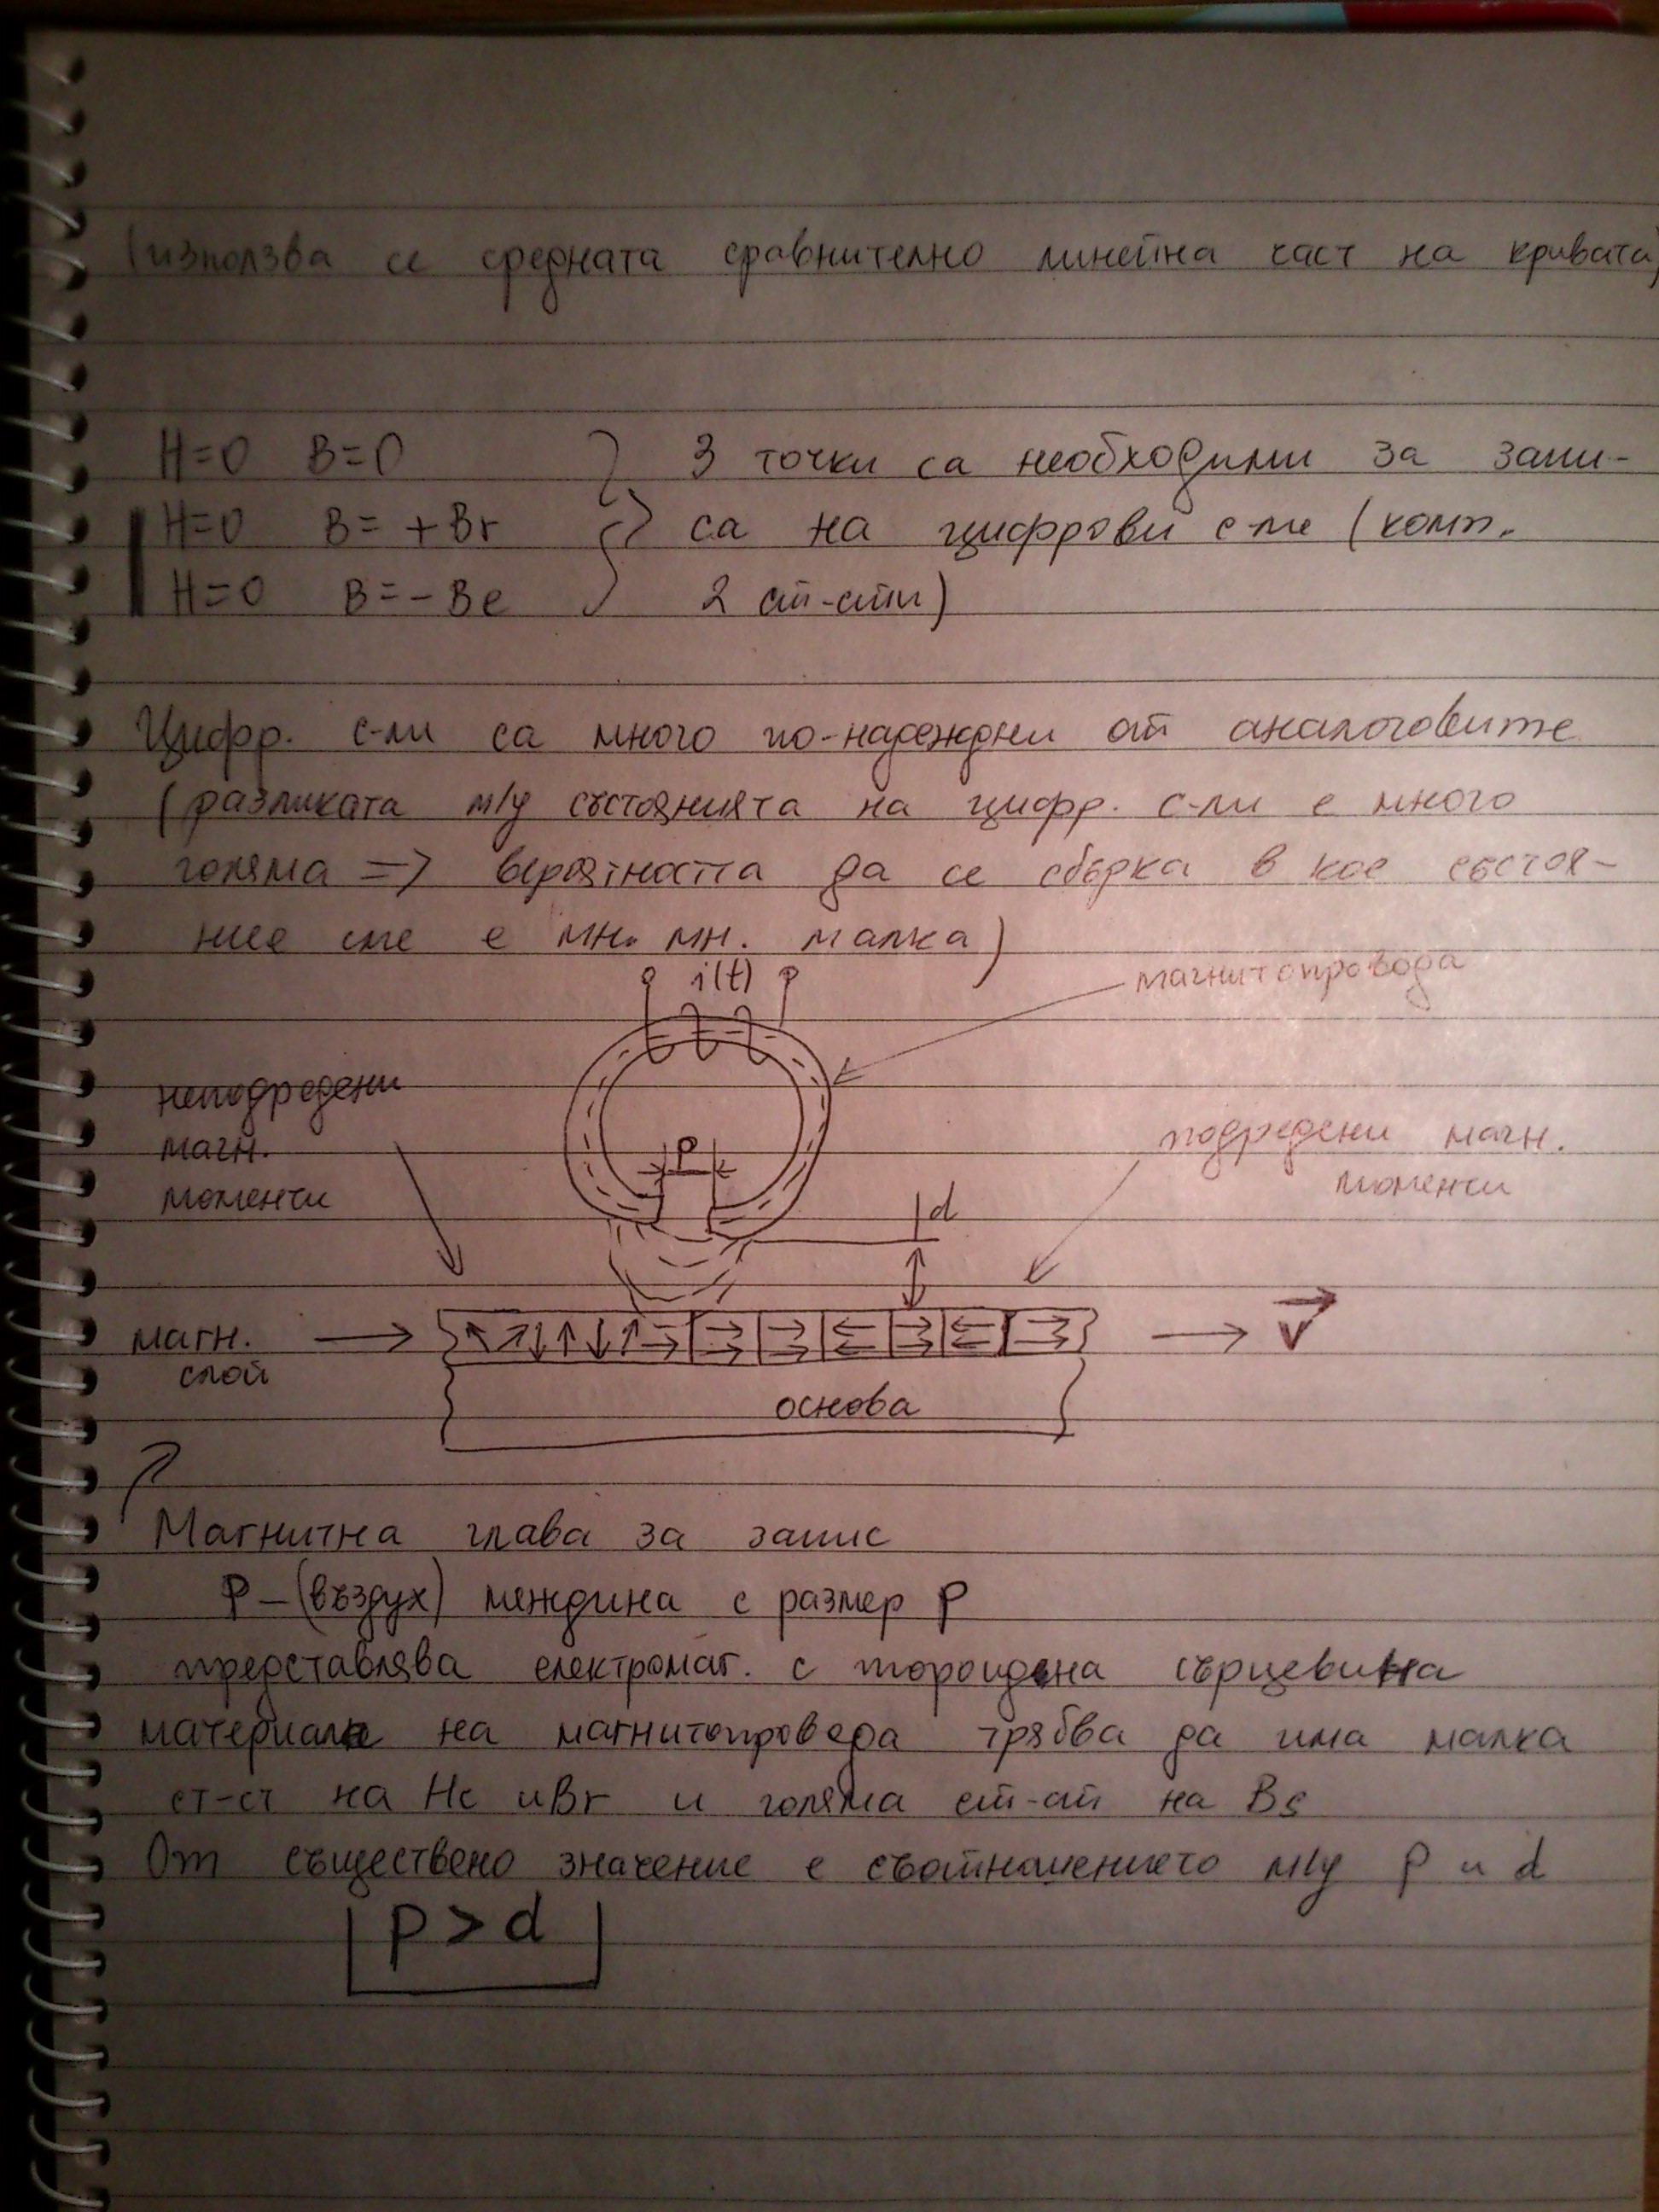 (използва се средната сравнително линейна част на кривата)
H=0 B=0 3 точки са необходими за запи-
H=0 B=+Br са на цифрови с-ми (комп.
H=0 B=-Be 2 ст-сти)
Цифр. с-ми са много по-надеждни от аналоговите
(разликата м/у състоянията на цифр. с-ми е много
голяма => вероятността да се сбърка в кое състоя-
ние сме е мн. мн. малка)
i(t)
магнитопровода
неподредени
магн.
моменти
p
подредени магн.
моменти
d
магн.
слой
v
основа
Магнитна глава за запис
P - (въздух) междина с размер p
представлява електромаг. с тороидна сърцевина
материала на магнитопровода трябва да има малка
ст-ст на Hc и Br и голяма ст-ст на Bs
От съществено значение е съотношението м/у p и d
p > d